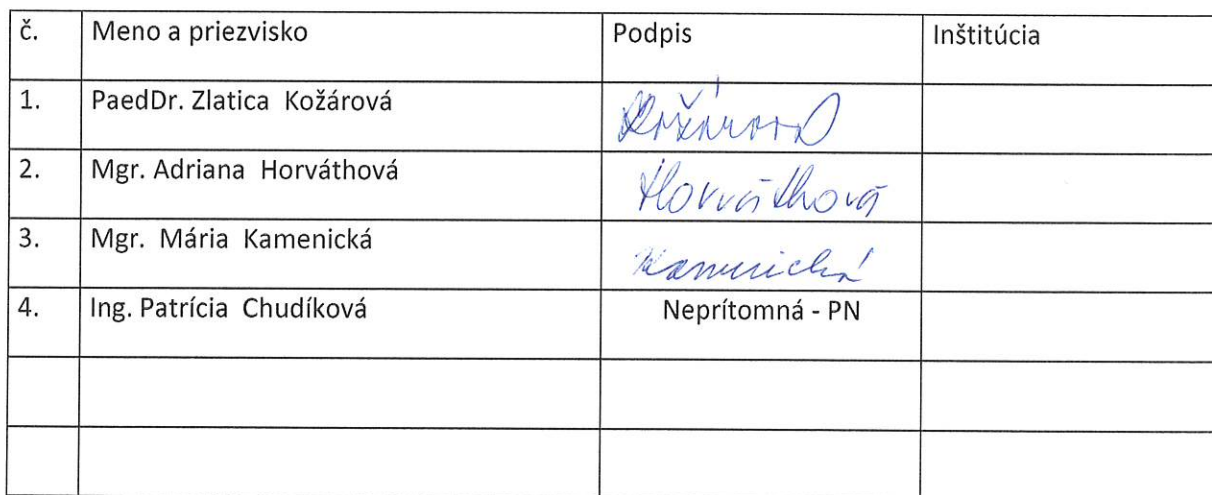 č. Meno a priezvisko Podpis Inštitúcia
1. PaedDr. Zlatica Kožárová Kožárová
2. Mgr. Adriana Horváthová Horváthová
3. Mgr. Mária Kamenická Kamenická
4. Ing. Patrícia Chudíková Neprítomná - PN